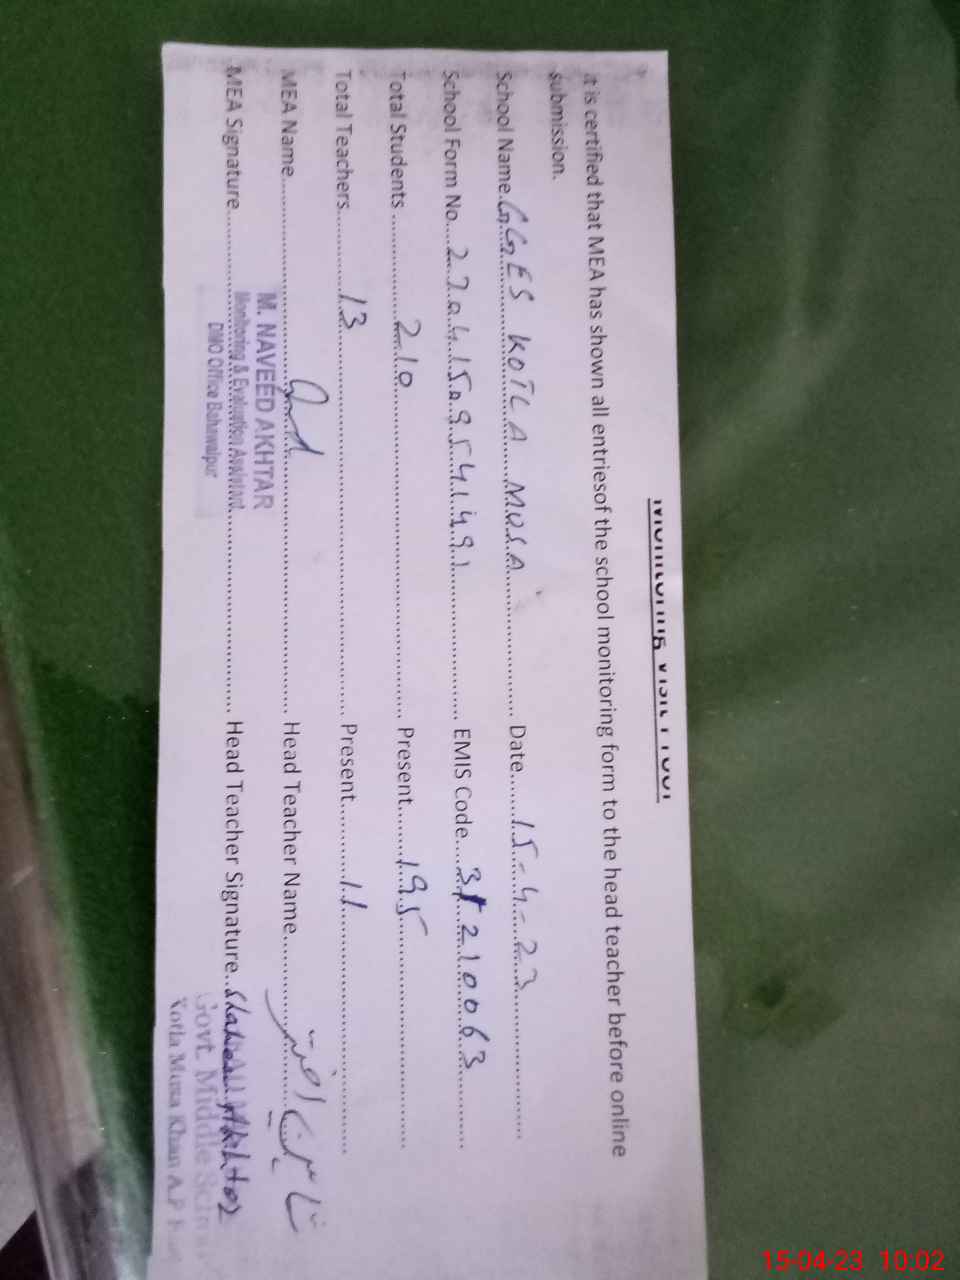 Monitoring Visit Proof
it is certified that MEA has shown all entriesof the school monitoring form to the head teacher before online
submission.
School Name GGES KOTLA MUSA Date 15-4-23
School Form No. EMIS Code
Total Students 210 Present 195
Total Teachers 13 Present 11
MEA Name Head Teacher Name
M. NAVEED AKHTAR
MEA Signature Head Teacher Signature
Monitoring & Evaluation Assistant
DMO Office Bahawalpur
Govt. Middle
Kotla Musa Khan A.P
15-04-23 10:02